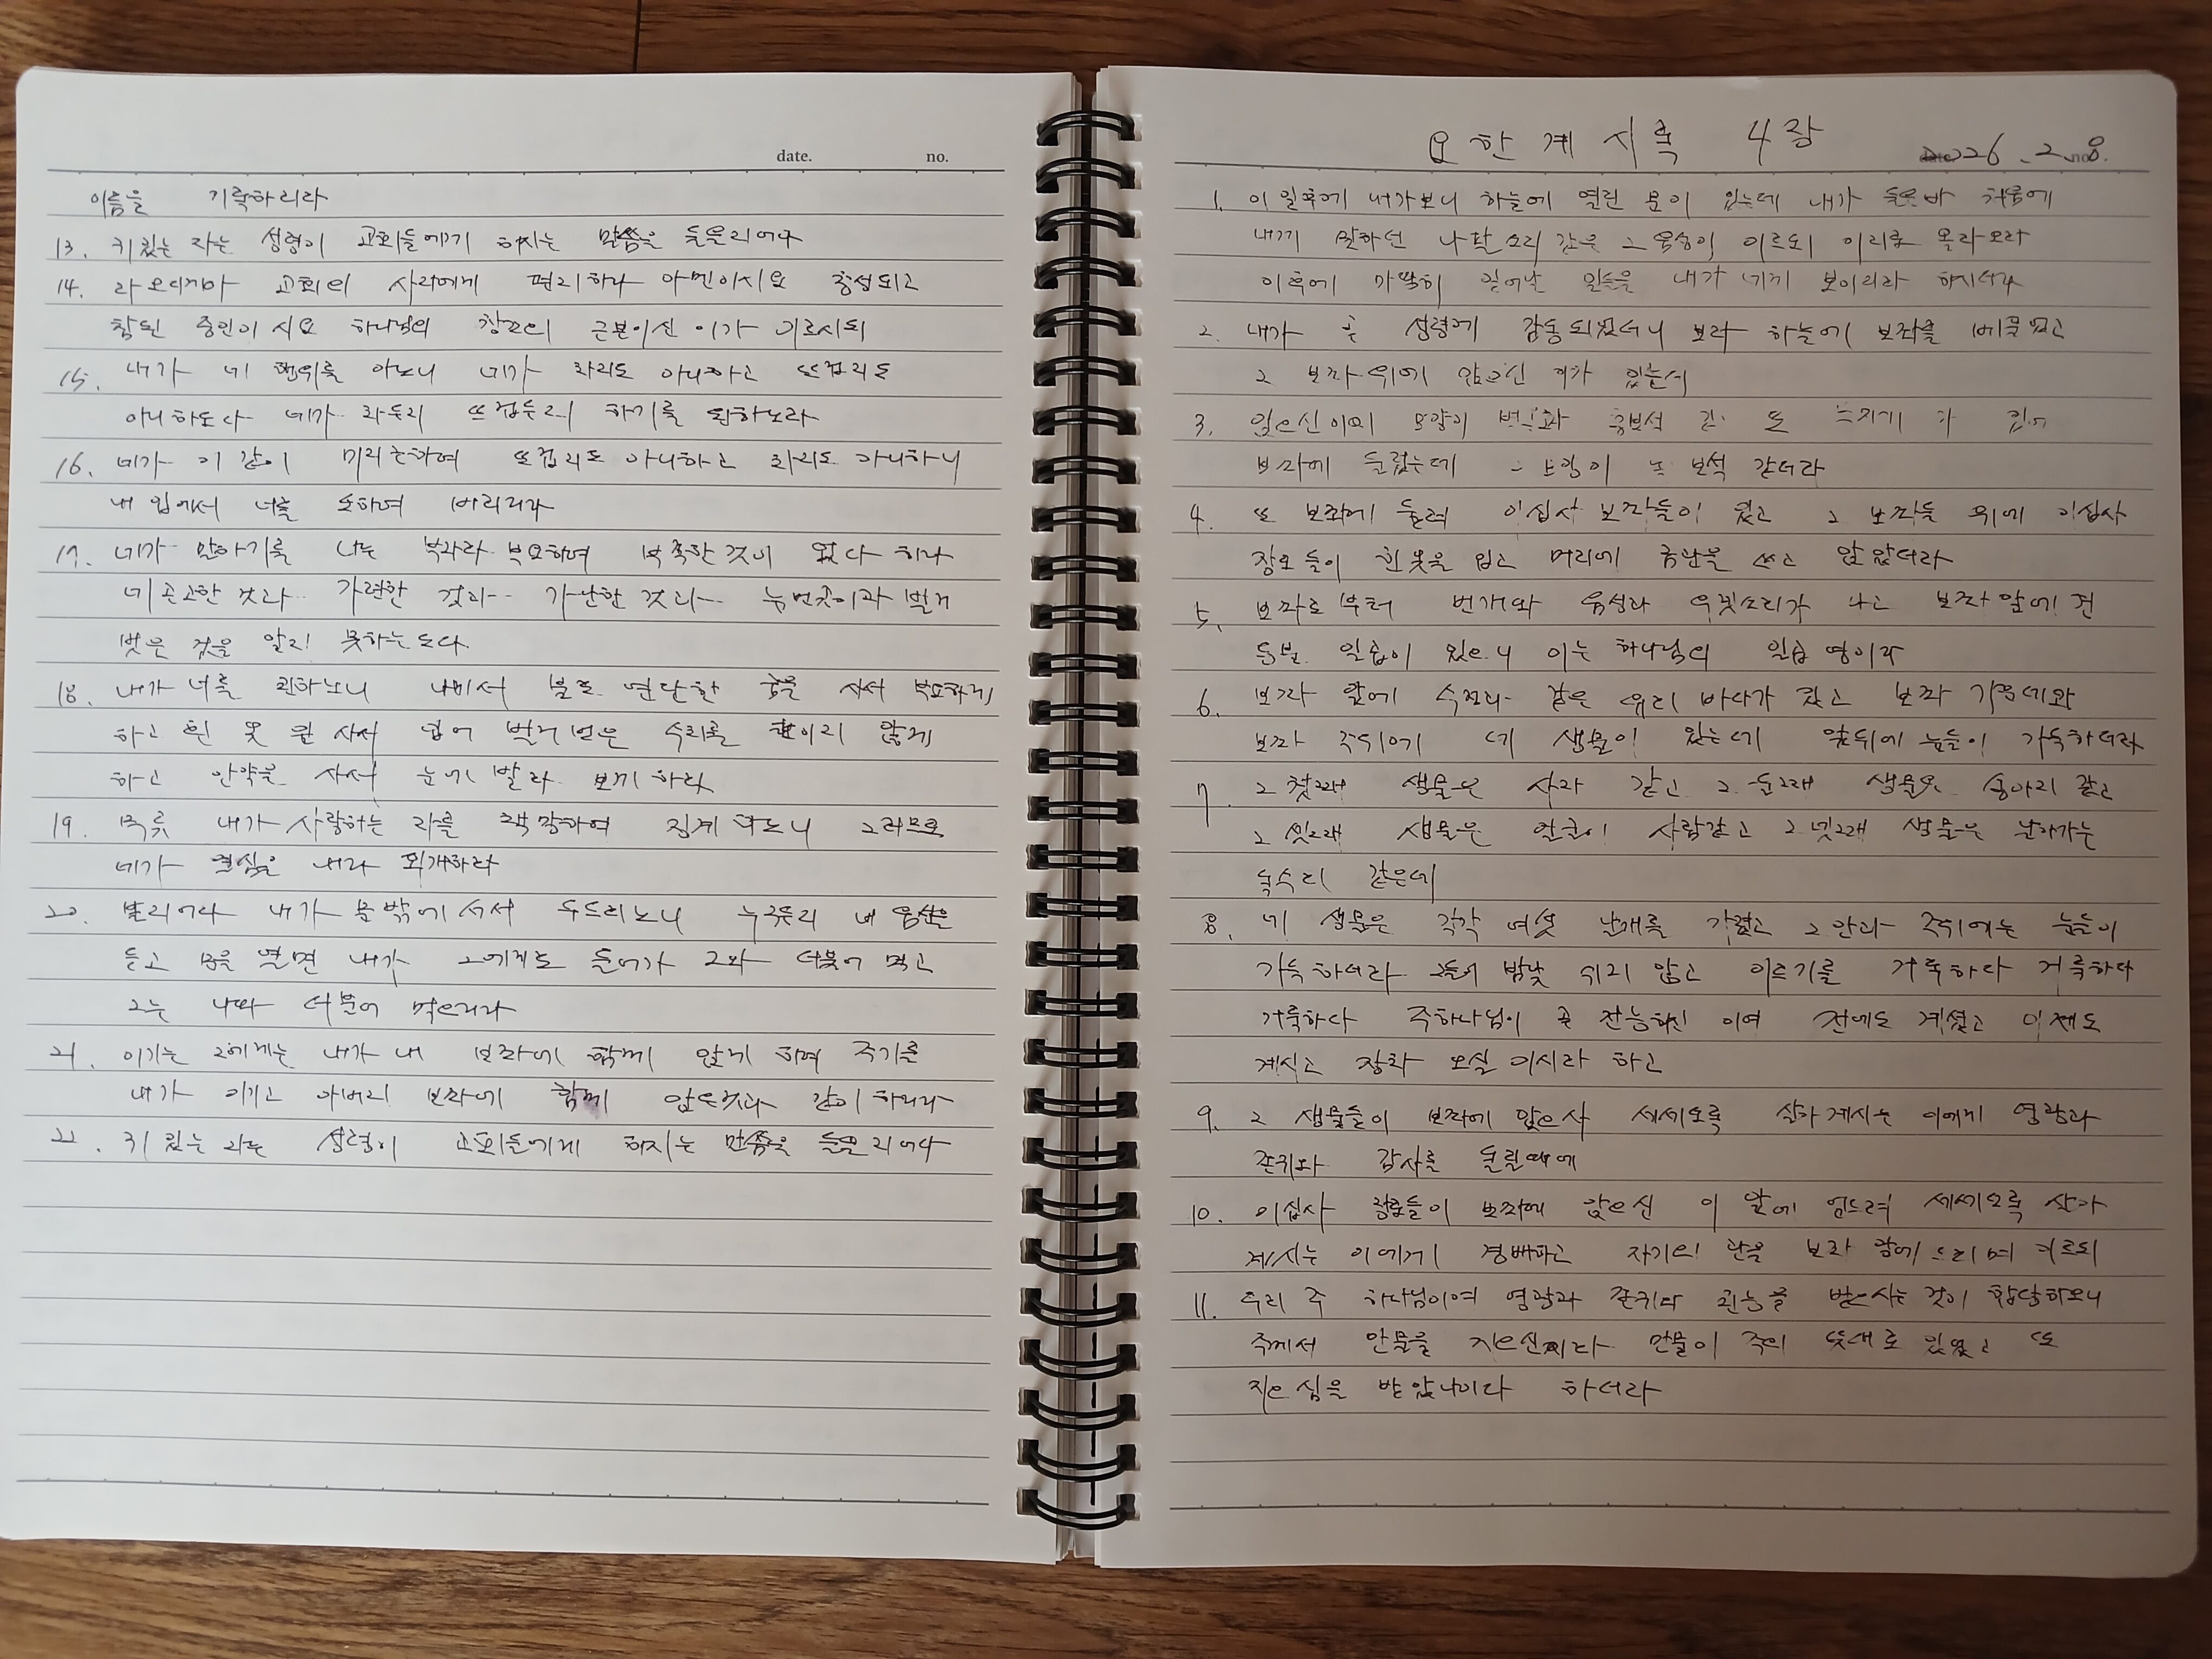 date. no.
이름을 기록하리라
13. 귀 있는 자는 성령이 교회들에게 하시는 말씀을 들을지어다
14. 라오디게아 교회의 사자에게 편지하라 아멘이시요 충성되고
참된 증인이시요 하나님의 창조의 근본이신 이가 이르시되
15. 내가 네 행위를 아노니 네가 차지도 아니하고 뜨겁지도
아니하도다 네가 차든지 뜨겁든지 하기를 원하노라
16. 네가 이같이 미지근하여 뜨겁지도 아니하고 차지도 아니하니
내 입에서 너를 토하여 버리리라
17. 네가 말하기를 나는 부자라 부요하여 부족한 것이 없다 하나
네 곤고한 것과 가련한 것과 가난한 것과 눈먼것이과 벌거
벗은 것을 알지 못하는도다
18. 내가 너를 권하노니 내게서 불로 연단한 금을 사서 부요하게
하고 흰 옷을 사서 입어 벌거벗은 수치를 보이지 않게
하고 안약을 사서 눈에 발라 보게 하라
19. 무릇 내가 사랑하는 자를 책망하여 징계하노니 그러므로
네가 열심을 내라 회개하라
20. 볼지어다 내가 문 밖에 서서 두드리노니 누구든지 내 음성을
듣고 문을 열면 내가 그에게로 들어가 그와 더불어 먹고
그는 나와 더불어 먹으리라
21. 이기는 그에게는 내가 내 보좌에 함께 앉게 하여 주기를
내가 이기고 아버지 보좌에 함께 앉은것과 같이 하리라
22. 귀 있는 자는 성령이 교회들에게 하시는 말씀을 들을지어다
요한계시록 4장 2026. 2. 8.
1. 이 일 후에 내가 보니 하늘에 열린 문이 있는데 내가 들은바 처음에
내게 말하던 나팔소리 같은 그 음성이 이르되 이리로 올라오라
이후에 마땅히 일어날 일들을 내가 네게 보이리라 하시더라
2. 내가 곧 성령에 감동되었더니 보라 하늘에 보좌를 베풀었고
그 보좌 위에 앉으신 이가 있는데
3. 앉으신 이의 모양이 벽옥과 홍보석 같고 또 무지개가 있어
보좌에 둘렸는데 그 모양이 녹보석 같더라
4. 또 보좌에 둘려 이십사 보좌들이 있고 그 보좌들 위에 이십사
장로들이 흰 옷을 입고 머리에 금관을 쓰고 앉았더라
5. 보좌로부터 번개와 음성과 우렛소리가 나고 보좌 앞에 켠
등불 일곱이 있으니 이는 하나님의 일곱 영이라
6. 보좌 앞에 수정과 같은 유리 바다가 있고 보좌 가운데와
보좌 주위에 네 생물이 있는데 앞뒤에 눈들이 가득하더라
7. 그 첫째 생물은 사자 같고 그 둘째 생물은 송아지 같고
그 셋째 생물은 얼굴이 사람같고 그 넷째 생물은 날아가는
독수리 같은데
8. 네 생물은 각각 여섯 날개를 가졌고 그 안과 주위에는 눈들이
가득하더라 그들이 밤낮 쉬지 않고 이르기를 거룩하다 거룩하다
거룩하다 주 하나님이 곧 전능하신 이여 전에도 계셨고 이제도
계시고 장차 오실 이시라 하고
9. 그 생물들이 보좌에 앉으사 세세토록 살아 계시는 이에게 영광과
존귀와 감사를 돌릴때에
10. 이십사 장로들이 보좌에 앉으신 이 앞에 엎드려 세세토록 살아
계시는 이에게 경배하고 자기의 관을 보좌 앞에 드리며 이르되
11. 우리 주 하나님이여 영광과 존귀와 권능을 받으시는 것이 합당하오니
주께서 만물을 지으신지라 만물이 주의 뜻대로 있었고 또
지으심을 받았나이다 하더라